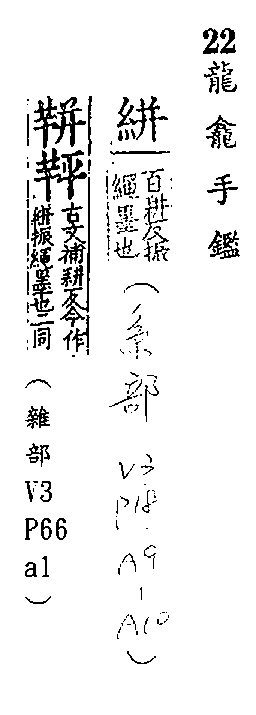 22龍龕手鑑
絣百耕反振繩墨也(糸部 V3 P18-A9-A10)
古文補耕反今作絣振繩墨也二同(雜部V3P66a1)